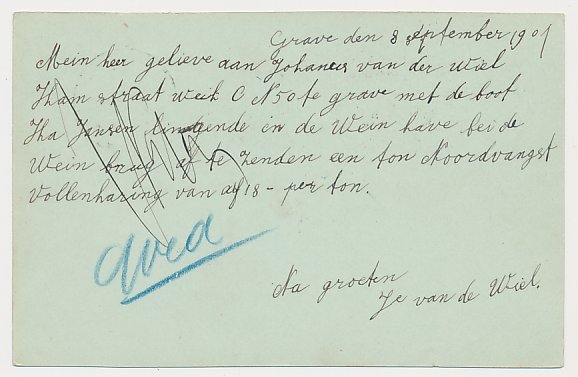 Grave den 8 september 1901
Mein heer gelieve aan Johanes van der Wiel
Ham straat weik C N50 te grave met de boot
Tha Jansen lingende in de Wein have bei de
Wein brug af te zenden een ton Noordvangst
Vollenharing van af 18 - per ton.
Na groeten
Je van de Wiel.